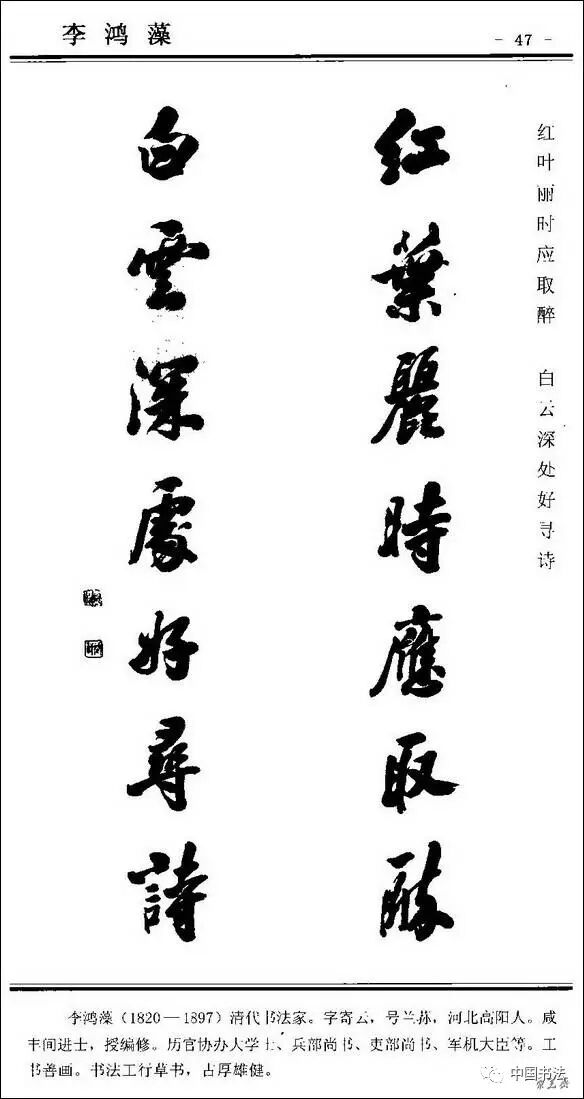 李鸿藻
- 47 -
红叶丽时应取醉 白云深处好寻诗
紅葉麗時應取醉
白雲深處好尋詩
李鸿藻（1820—1897）清代书法家。字寄云，号兰荪，河北高阳人。咸
丰间进士，授编修。历官协办大学士、兵部尚书、吏部尚书、军机大臣等。工
书善画。书法工行草书，古厚雄健。
中国书法